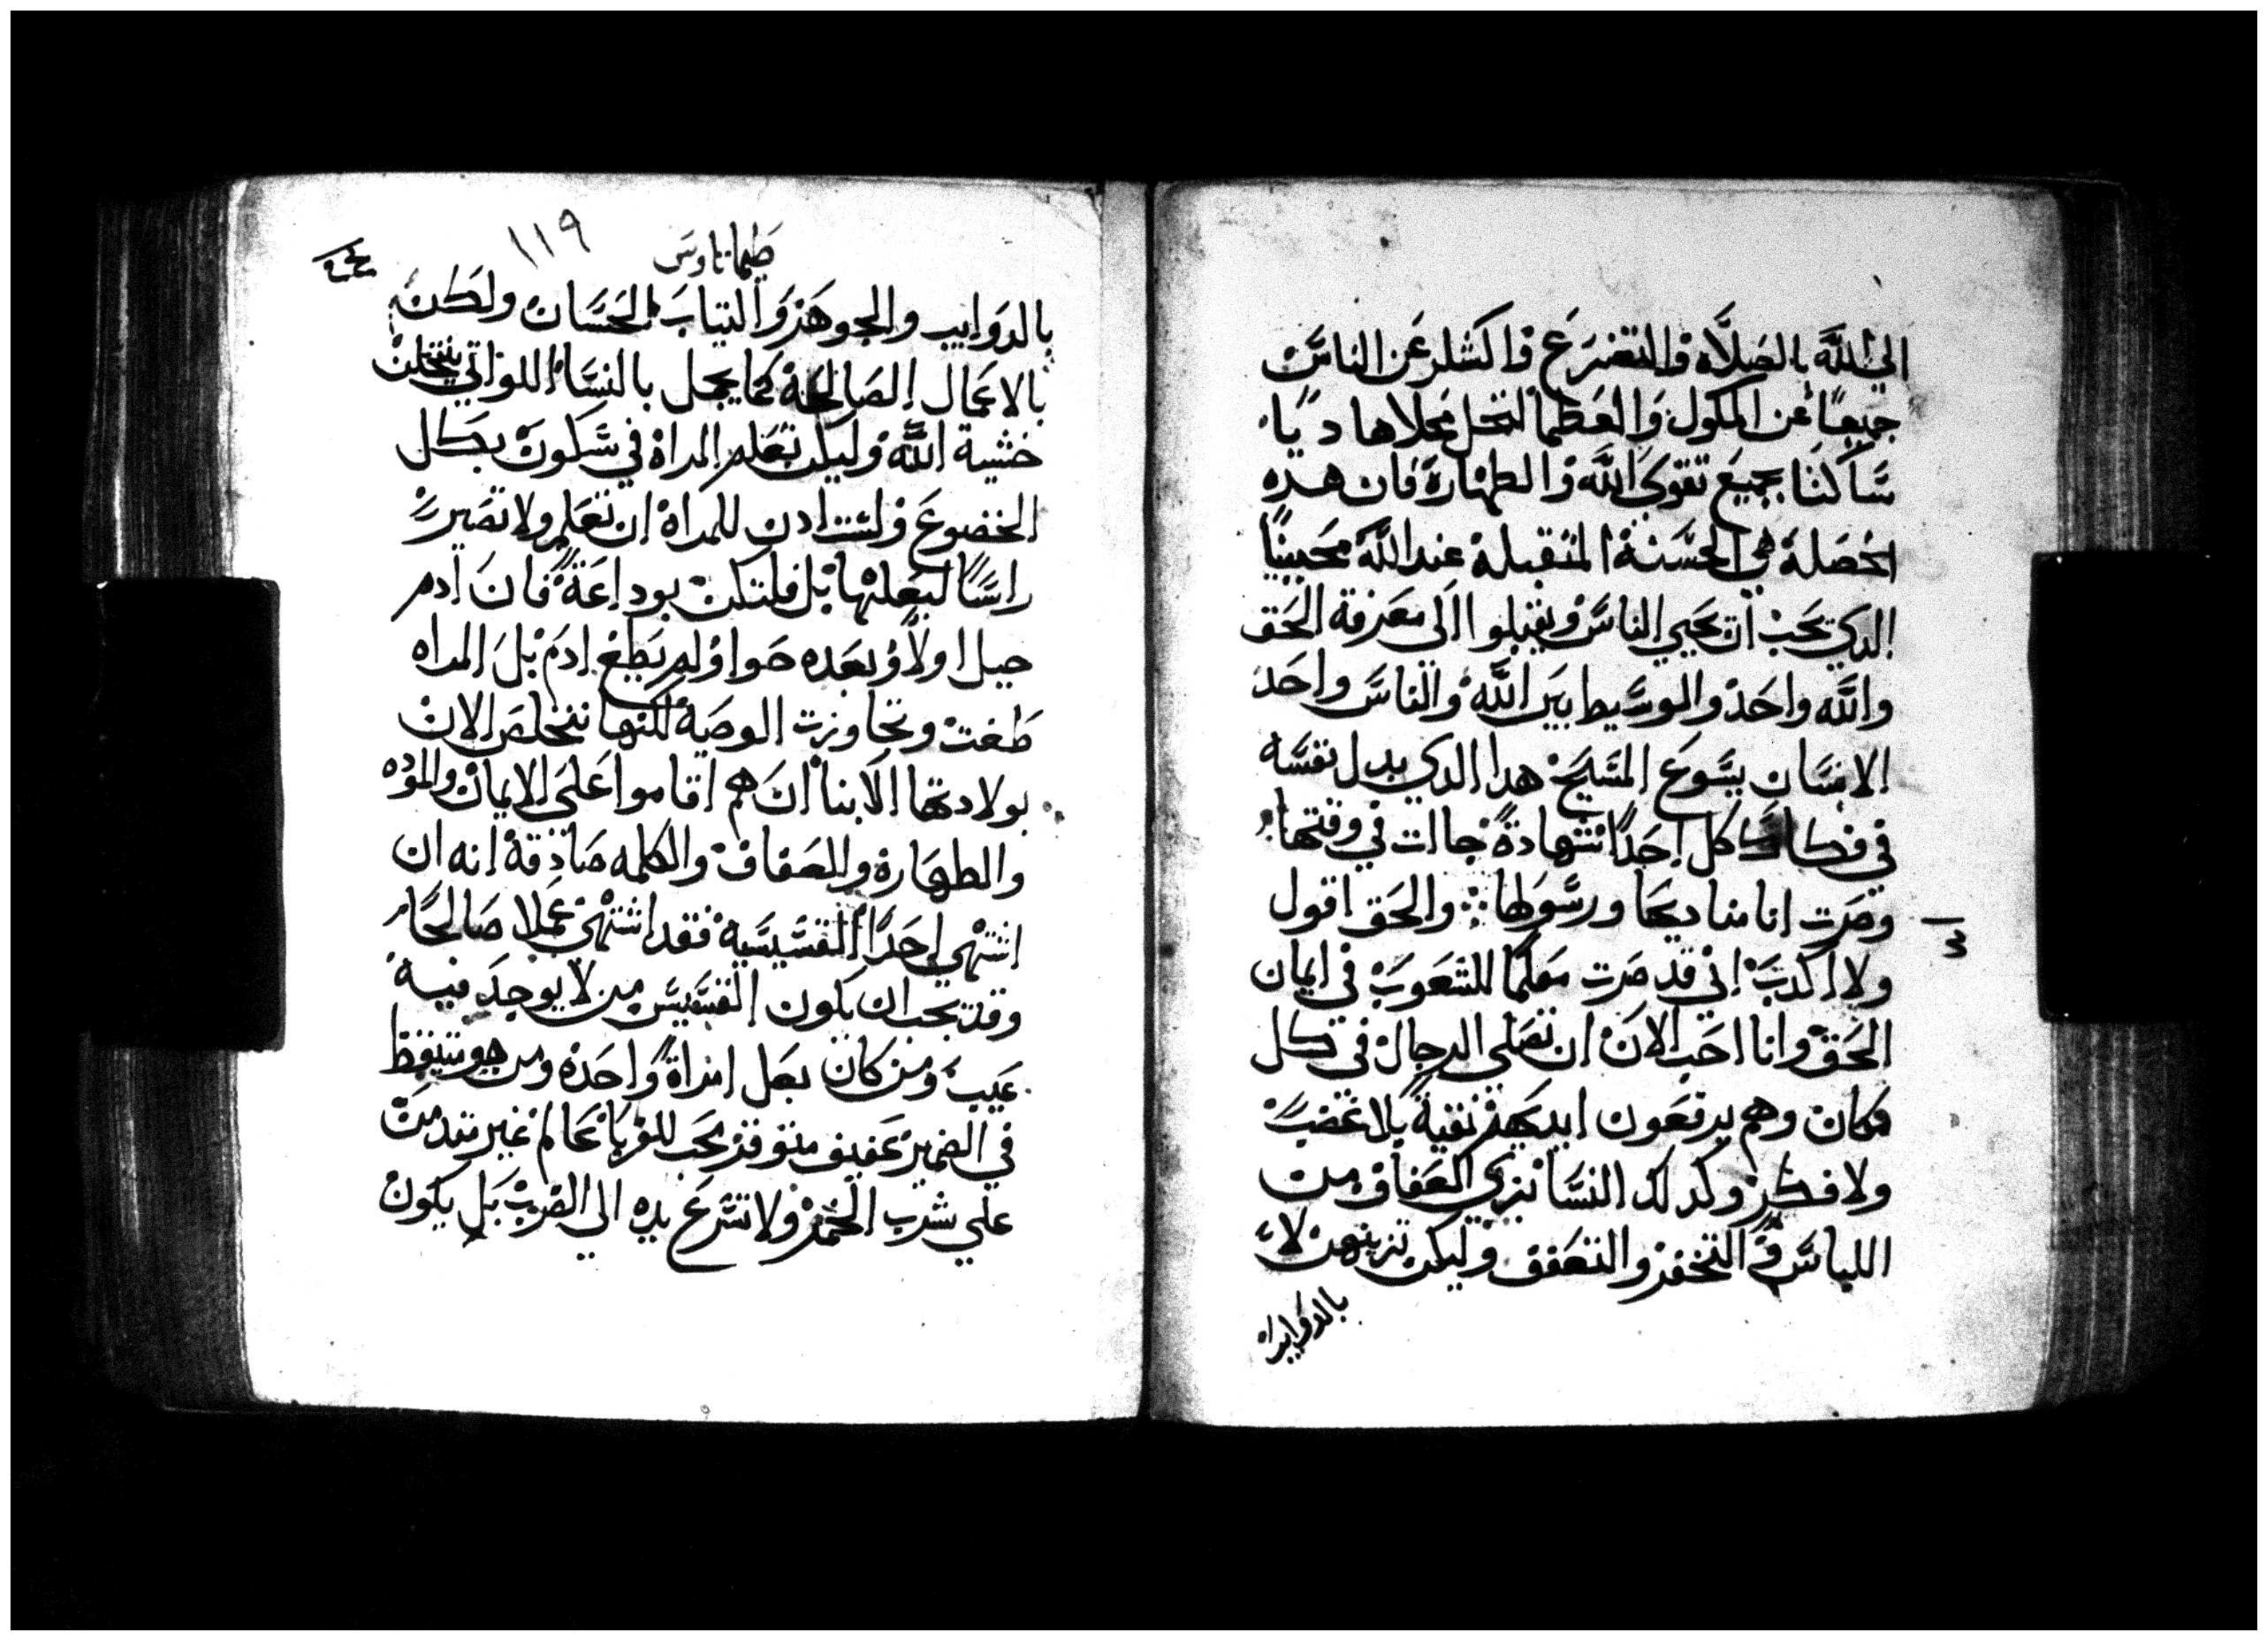 الي الله بالصلاه والتضرع واكشلر عن الناس
جميعا عن الملوك والعظما لنحل محلا هاديا
ساكنا بجميع تقوي الله والطهارة فان هده
الخصلة هي الحسنة المتقبلة عند الله محيينا
الدي يحب ان يحيي الناس ويقبلوا الي معرفة الحق
والله واحد والوسيط بين الله والناس واحد
الانسان يسوع المسيح هدا الدي بدل نفسه
في فكاك كل احدا شهادة جاات في وقتها
وصرت انا مناديها ورسولها والحق اقول
ولا اكدب اني قد صرت معلما للشعوب في ايمان
الحق وانا احب الان ان تصلي الرجال في كل
مكان وهم يرفعون ايديهم نقية بلا غضب
ولا فكر وكدلك النسا بزي العفاف من
اللباس والتخفر والتعفف وليكن تزينهن لا
بالدوايب
طيماتاوس
١١٩
بالدوايب والجوهر والتياب الحسان ولكن
بالاعمال الصالحة كما يجمل بالنسا اللواتي ينتحلن
خشية الله وليكن تعلم المراة في سكون بكل
الخضوع ولست ادن للمراة ان تعلم ولا تصير
راسا لبعلها بل فلتكن بوداعة فان ادم
جبل اولا وبعده حوا ولم يطغ ادم بل المراه
طغت وتجاوزت الوصية لكنها تتخلص الان
بولادتها الابنا ان هم اقاموا علي الايمان والموده
والطهارة والعفاف والكلمه صادقة انه ان
اشتهي احدا القسيسية فقد اشتهي عملا صالحا
وقد يجب ان يكون القسيس من لا يوجد فيه
عيب ومن كان بعل امراة واحده ومن هو متيقظ
في الضمير عفيف متوقر يحب للغربا عالم غير متدمن
علي شرب الخمر ولا تسرع يده الي الضرب بل يكون